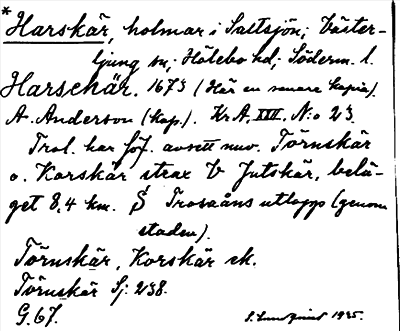 * Harskär, holmar i Saltsjön; Väster-
ljung sn; Hölebo hd; Söderm. l.
Harschär. 1673 (Här en senare kopia).
A. Anderson (kop.). Kr A, XIII, N:o 23.
Trol. har förf. avsett nuv. Törnskär
o. Korskär strax V Jutskär, belä-
get 8,4 km. S Trosaåns utlopp (genom
staden).
Törnskär, Korskär ek.
Törnskär Sj: 238.
G. 67.
1935.